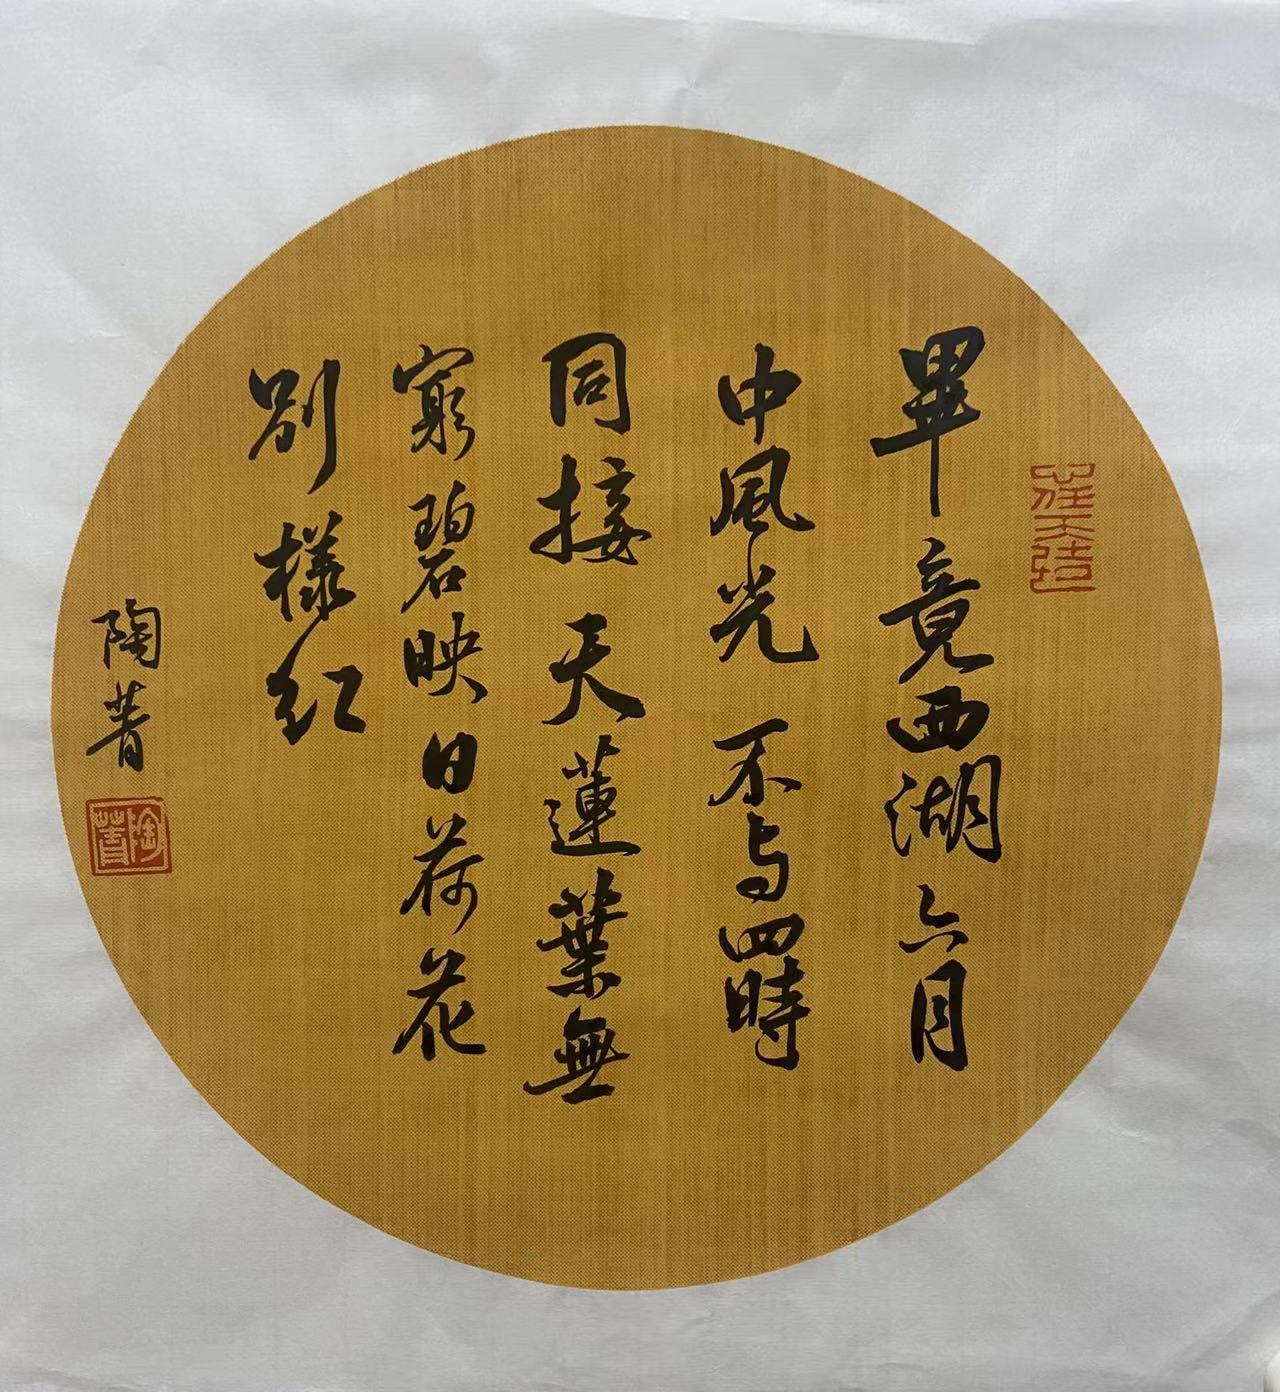 畢竟西湖六月
中風光不与四時
同接天蓮葉無
窮碧映日荷花
別樣红
陶菁
陶菁